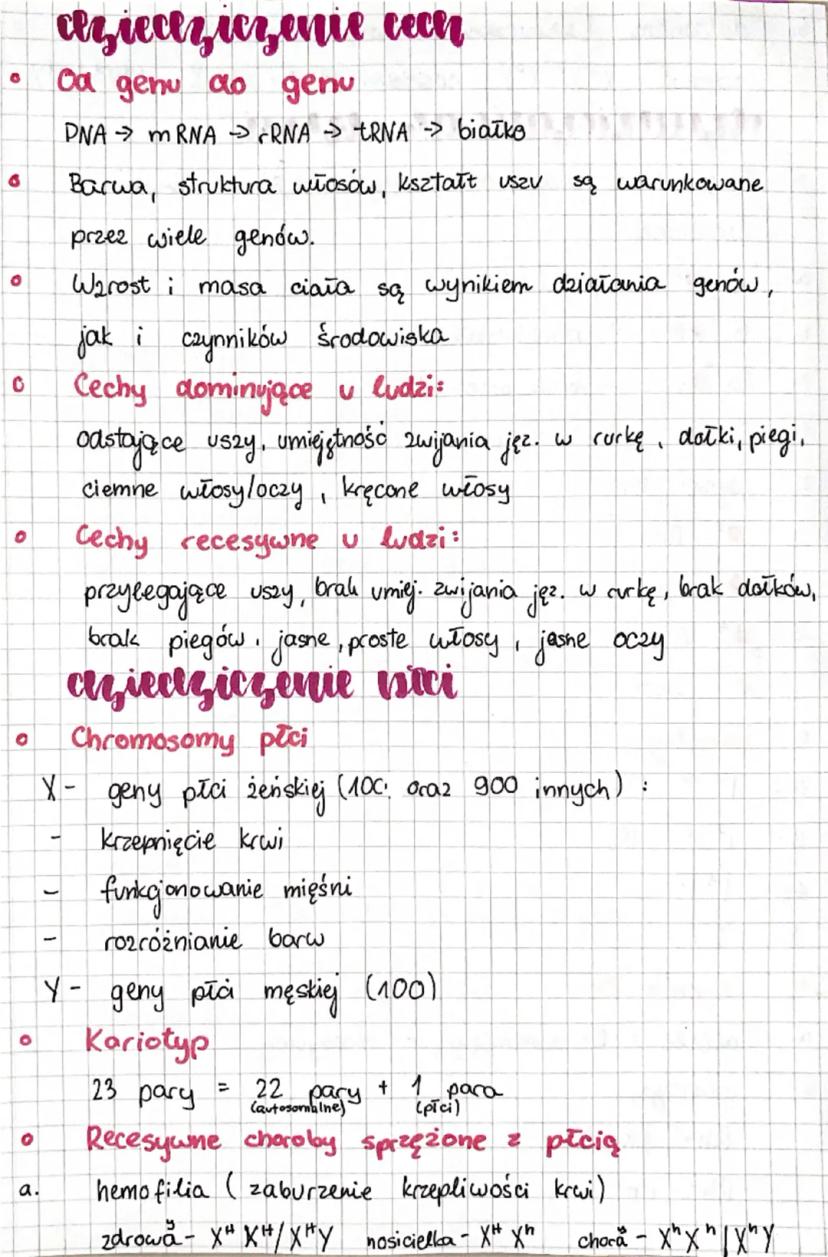 dziedziczenie cech
Od genu do genu
DNA → mRNA → rRNA → tRNA → białko
Barwa, struktura włosów, kształt uszu są warunkowane
przez wiele genów.
Wzrost i masa ciała są wynikiem działania genów,
jak i czynników środowiska
Cechy dominujące u ludzi:
odstające uszy, umiejętność zwijania jęz. w rurkę, dołki, piegi,
ciemne włosy/oczy, kręcone włosy
Cechy recesywne u ludzi:
przylegające uszy, brak umiej. zwijania jęz. w rurkę, brak dołków,
brak piegów, jasne, proste włosy, jasne oczy
dziedziczenie płci
Chromosomy płci
X - geny płci żeńskiej (100 oraz 900 innych):
- krzepnięcie krwi
- funkcjonowanie mięśni
- rozróżnianie barw
Y - geny płci męskiej (100)
Kariotyp
23 pary = 22 pary + 1 para
(autosomalne) (płci)
Recesywne choroby sprzężone z płcią
a. hemofilia (zaburzenie krzepliwości krwi)
zdrowa/y - X^H X^H / X^H Y nosicielka - X^H X^h chora/y - X^h X^h / X^h Y